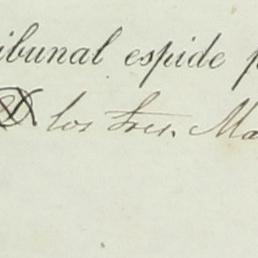 ibunal espide p
los tres. Ma